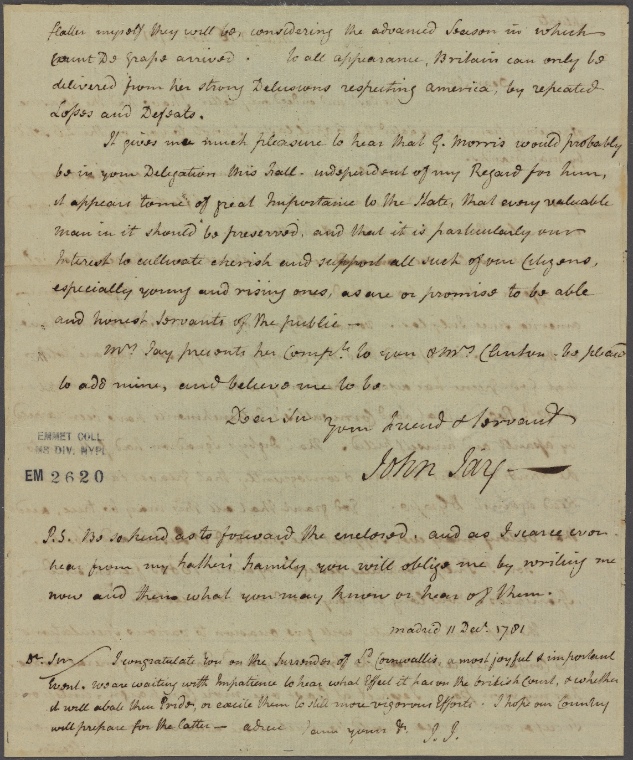 flatter myself they will be, considering the advanced Season in which
Count De Grasse arrived. To all appearance, Britain can only be
delivered from her strong Delusions respecting america, by repeated
Losses and Defeats.
It gives me much pleasure to hear that G. Morris would probably
be in your Delegation this Fall - independent of my Regard for him,
it appears to me of great Importance to the State, that every valuable
man in it should be preserved, and that it is particularly our
Interest to cultivate cherish and support all such of our Citizens,
especially young and rising ones, as are or promise to be able
and honest Servants of the public —
Mrs. Jay, presents her Compts. to you & Mrs. Clinton - be pleased
to add mine, and believe me to be
Dear Sir
Your Friend & Servant
John Jay —
EMMET COLL
MS DIV. NYPL
EM 2620
P.S. Be so kind as to forward the enclosed, and as I scarce ever
hear from my Father's Family you will oblige me by writing me
now and then what you may know or hear of them.
Madrid 11 Decr. 1781
Dr. Sir/ I congratulate You on the Surrender of Ld. Cornwallis, a most joyful & important
Event. We are waiting with Impatience to hear what Effect it has on the british Court, & whether
it will abate their Pride, or excite them to still more vigorous Efforts. I hope our Country
will prepare for the latter — adieu I am yours &c J.J.